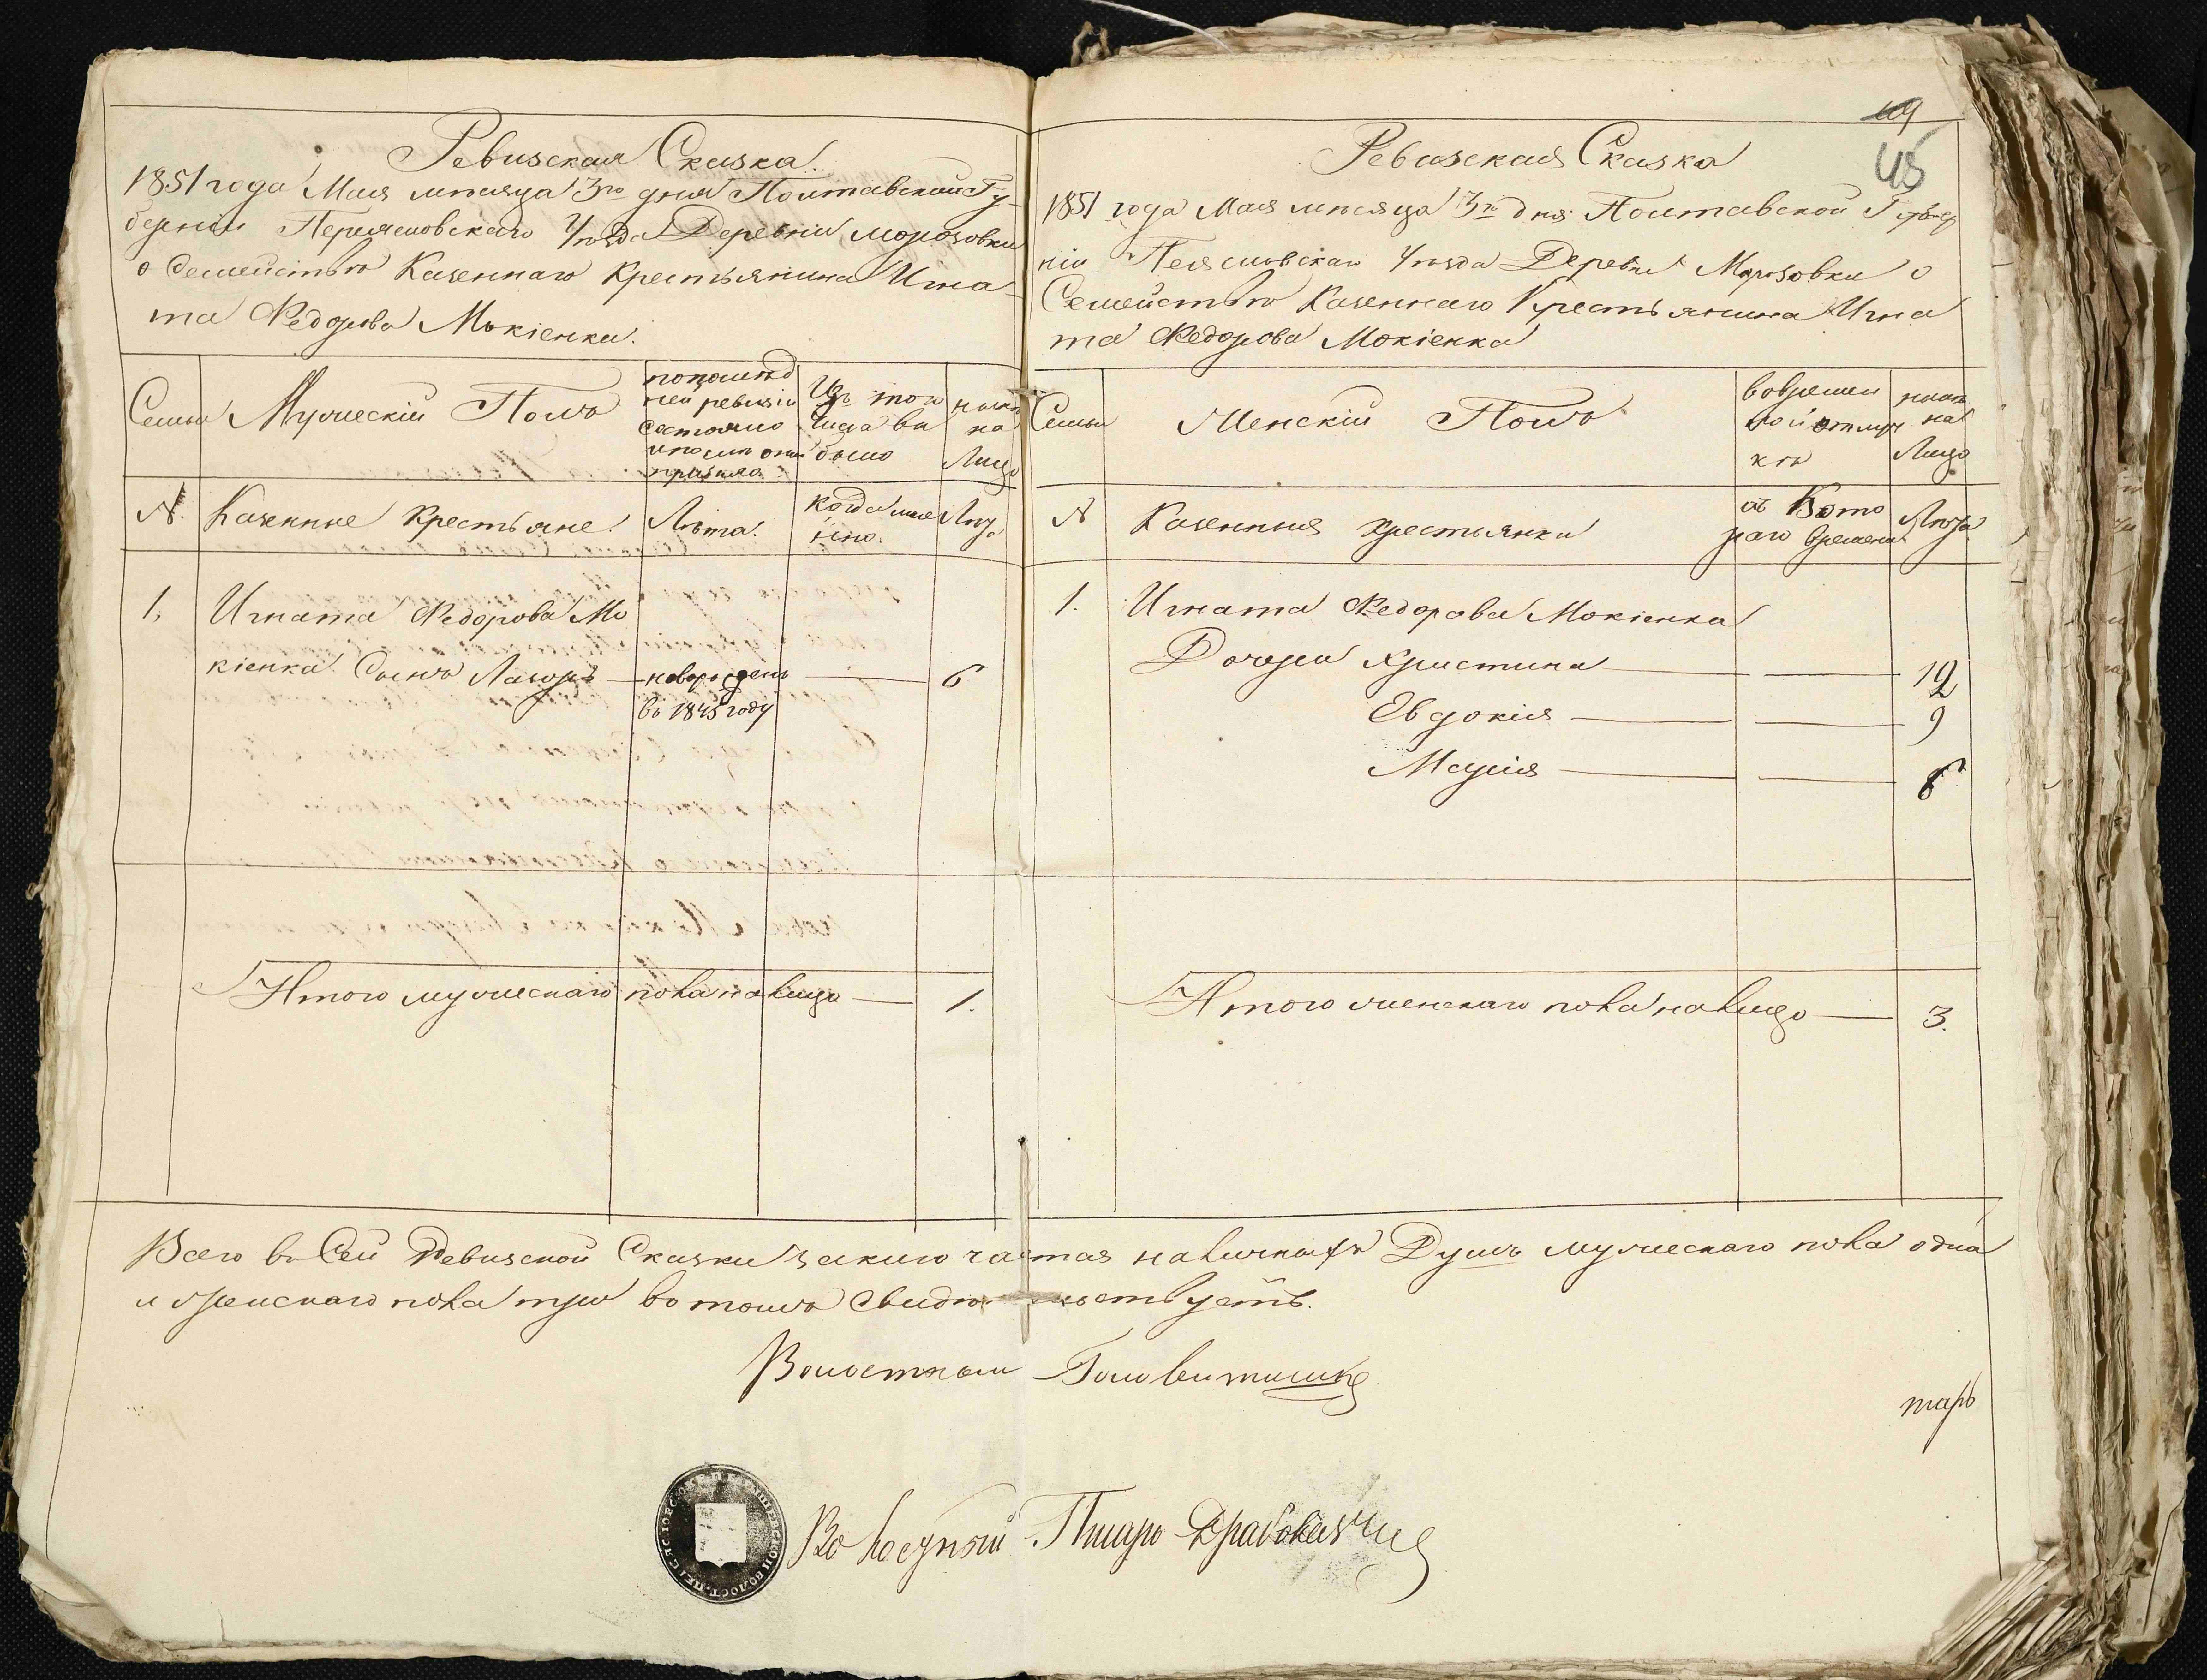 Ревизская Сказка.
1851 года Мая месяца 3го дня Полтавской Гу-
берніи Переясловскаго Уезда Деревни Морозовки
о Семействе Казеннаго Крестьянина Игна-
та Федорова Мокіенка.
Семьи
Мужескій Полъ
попослед
ней ревизіи
состояло
и после оной
прибыло
Изъ того
числа вы
было
ныне
на
Лицо
№.
Казенные Крестьяне.
Лета.
Когда имен
нно.
Лета
1.
Игната Федорова Мо
кіенка Сынъ Лазоръ — новорожденъ — 6
въ 1845 году
Итого мужескаго пола налицо — 1.
49
45
Ревизская Сказка
1851 года Мая месяца 3го дня Полтавской Губер
ніи Переясловскаго Уезда Деревни Морозовки о
Семействе Казеннаго Крестьянина Игна
та Федорова Мокіенка
Семьи
Женскій Полъ
вовремен
ной отлуч
ке
ныне
на
Лицо
№
Казенныя крестьянки
съ Кото
раго времени
Лета
1.
Игната Федорова Мокіенка
Дочери Христина — 12
Евдокія — 9
Марія — 6
Итого женскаго пола налицо — 3.
Всего въ Сей Ревизской Сказки заключается наличныхъ Душъ мужескаго пола одна
и женскаго пола три въ томъ Свидетельствуетъ.
Волостный Голова
тарь
Волостный Писарь